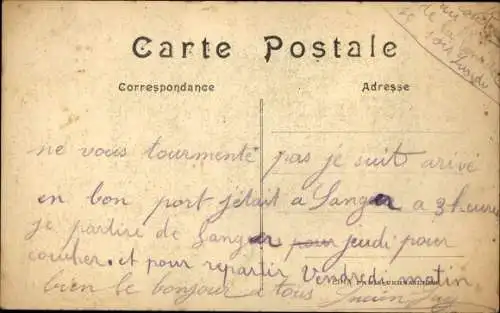 Carte Postale
Correspondance
Adresse
ne vous tourmenté pas jé suit arivé
en bon port j'était a Langer a 3 heures
je partire de Langer pour jeudi pour
coucher. et pour repartir Vendredi matin
bien le bonjour a tous Lucien